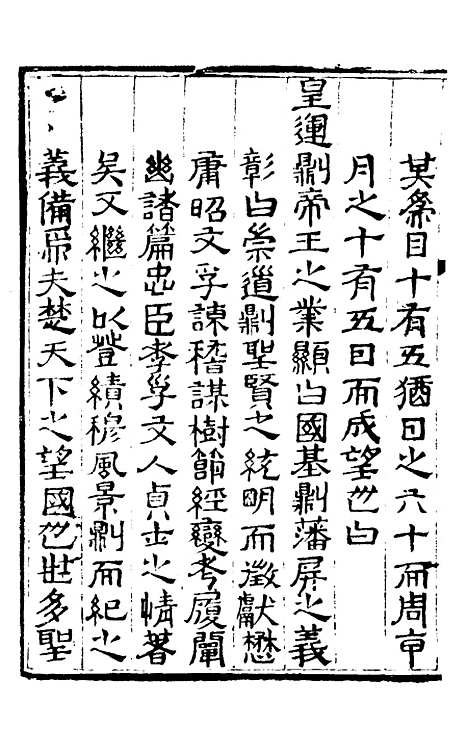 其綮目十有五猶日之六十而周帀
月之十有五日而成望也曰
皇運則帝王之業顯曰國基則藩屏之義
彰曰崇道則聖賢之統明而徵獻懋
庸昭文孚諫稽謀樹節經變考履闡
幽諸篇忠臣孝子文人貞士之情著
矣又繼之以登績穆風景則而紀之
義備焉夫楚天下之望國也世多聖